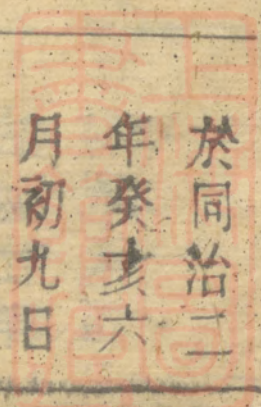 於同治二
年癸亥六
月初九日